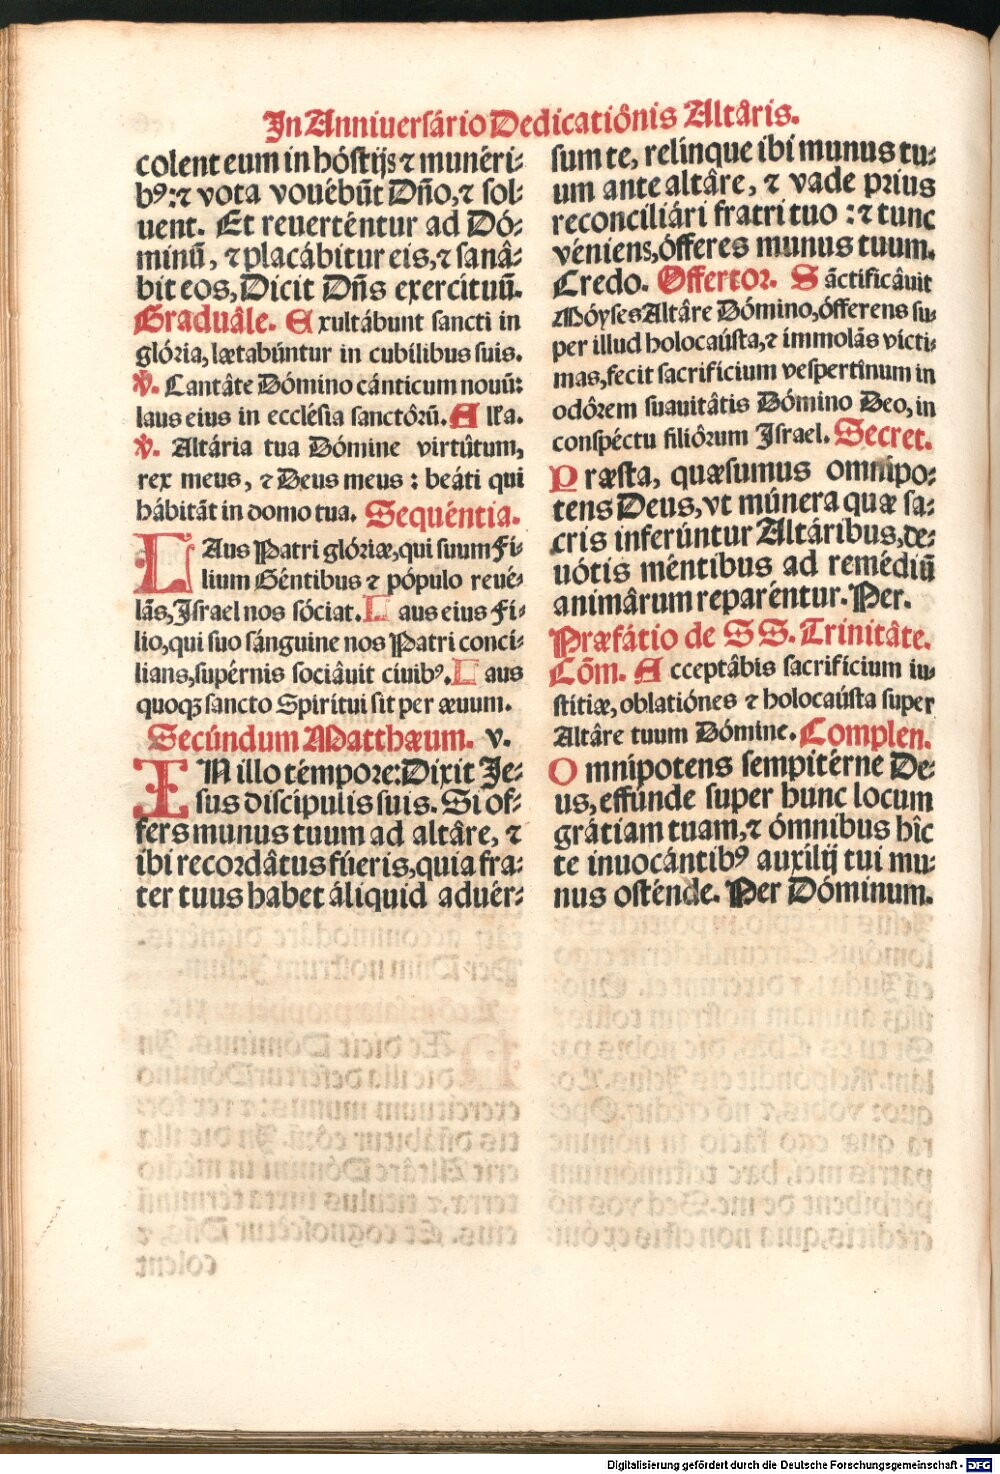 In Anniuersário Dedicatiônis Altâris.
colent eum in hóstijs ⁊ munéri⸗
bꝰ:⁊ vota vouébũt Dño,⁊ sol⸗
uent. Et reuerténtur ad Dó⸗
minũ, ⁊ placábitur eis,⁊ sanâ⸗
bit eos, Dicit Dñs exercituũ.
Graduâle. Exultábunt sancti in
glória, lætabúntur in cubílibus suis.
℣. Cantâte Dómino cánticum nouũ:
laus eius in ecclésia sanctórũ. Alľa.
℣. Altária tua Dómine virtûtum,
rex meus, ⁊ Deus meus : beáti qui
hábitãt in domo tua. Sequéntia.
LAus Patri glóriæ, qui suum Fi⸗
lium Géntibus ⁊ pópulo reué⸗
lãs, Israel nos sóciat. Laus eius Fi⸗
lio, qui suo sánguine nos Patri concí⸗
lians, supérnis sociâuit ciuibꝰ. Laus
quoqꝫ sancto Spirítui sit per æuum.
Secúndum Matthæum. v.
IN illo témpore: Dixit Je⸗
sus discípulis suis. Si of⸗
fers munus tuum ad altâre, ⁊
ibi recordâtus fúeris, quia fra⸗
ter tuus habet áliquid aduér⸗
sum te, relínque ibi munus tu⸗
um ante altâre, ⁊ vade prius
reconciliári fratri tuo : ⁊ tunc
véniens, ófferes munus tuum.
Credo. Offertor. Sãctificâuit
Móyses Altâre Dómino, ófferens su⸗
per illud holocaústa,⁊ ímmolãs vícti⸗
mas, fecit sacrifícium vespertînum in
odôrem suauitâtis Dómino Deo, in
conspéctu filiôrum Israel. Secret.
Præsta, quæsumus omnípo⸗
tens Deus, vt múnera quæ sa⸗
cris inferúntur Altáribus, de⸗
uótis méntibus ad remédiũ
animârum reparéntur. Per.
Præfátio de SS. Trinitâte.
Cõm. Acceptâbis sacrifícium iu⸗
stítiæ, oblatiónes ⁊ holocaústa super
Altâre tuum Dómine. Complen.
Omnípotens sempitérne De⸗
us, effúnde super hunc locum
grátiam tuam,⁊ ómnibus hîc
te inuocántibꝰ auxílij tui mu⸗
nus osténde. Per Dóminum.
Digitalisierung gefördert durch die Deutsche Forschungsgemeinschaft - DFG